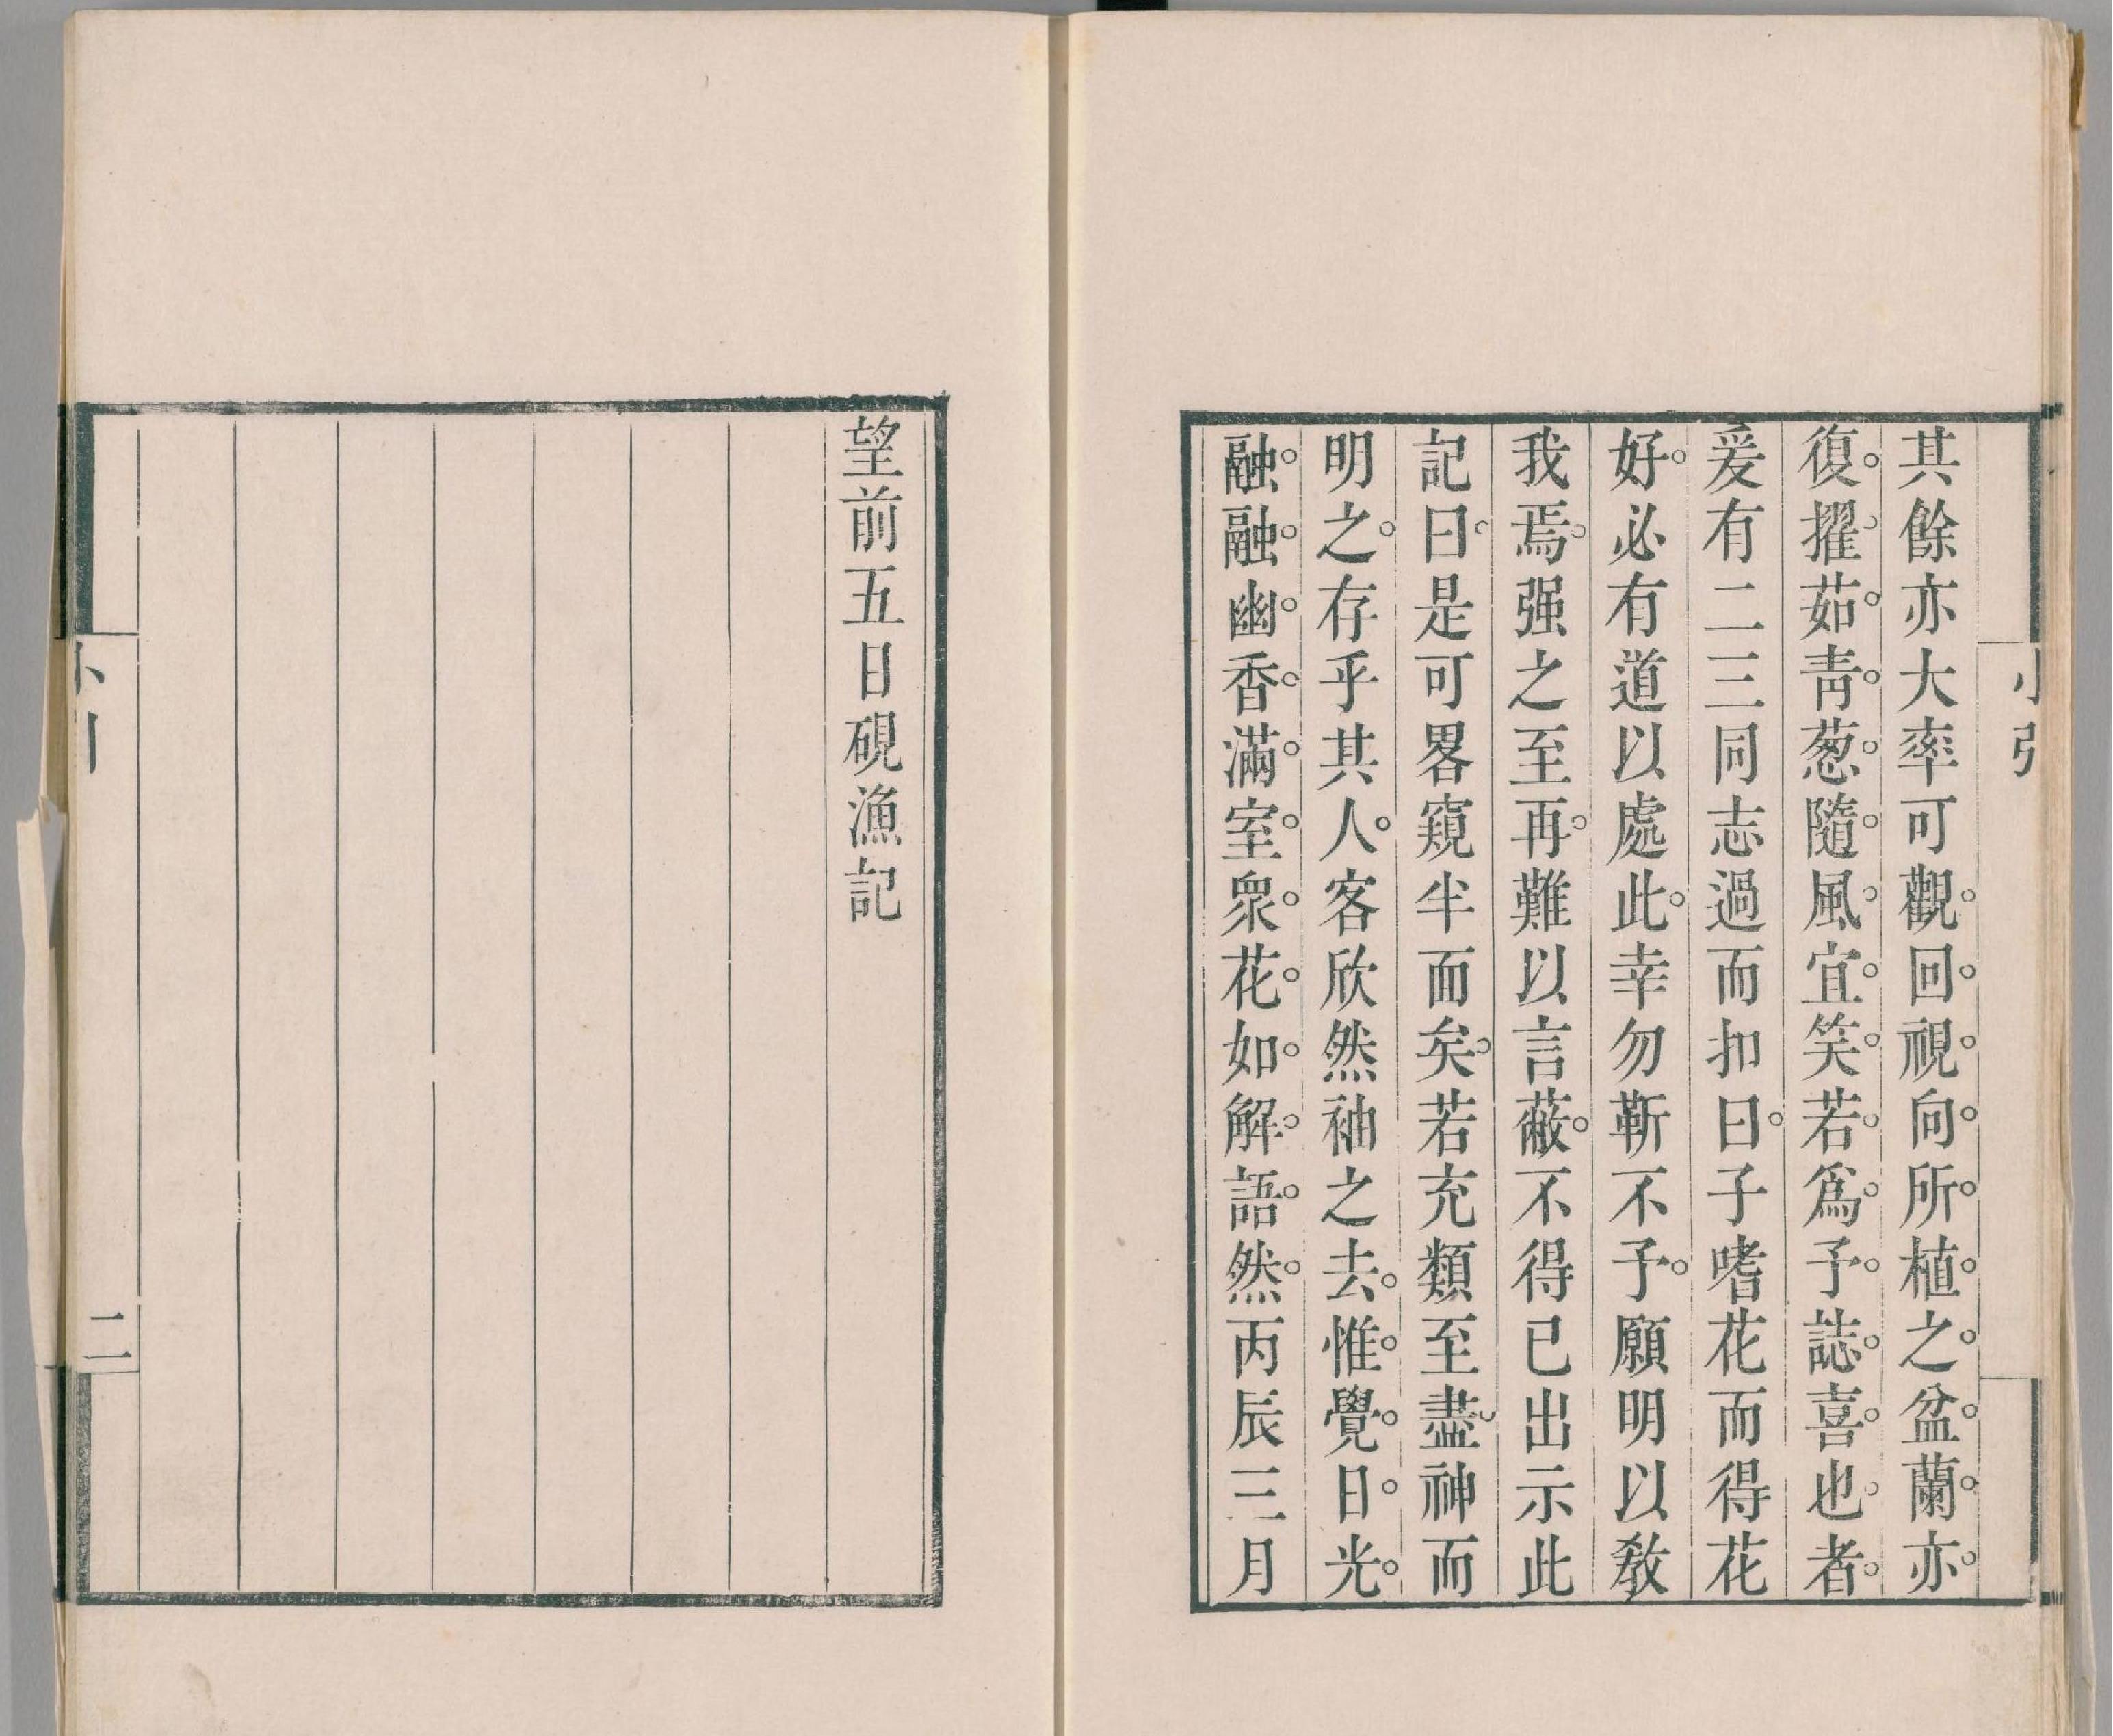 小引
其餘亦大率可觀。回。視。向。所。植。之。盆。蘭。亦。
復。擢。茹。靑。葱。隨。風。宜。笑。若。爲。予。誌。喜。也。者。
爰有二三同志過而扣曰。子嗜花而得花
好。必有道以處此。幸勿靳不予。願明以敎
我焉。强之至再。難以言蔽。不得已出示此
記曰。是可畧窺半面矣。若充類至盡。神而
明之。存乎其人。客欣然袖之去。惟。覺。日。光。
融。融。幽。香。滿。室。衆。花。如。解。語。然。丙辰三月
望前五日硯漁記
小引
二